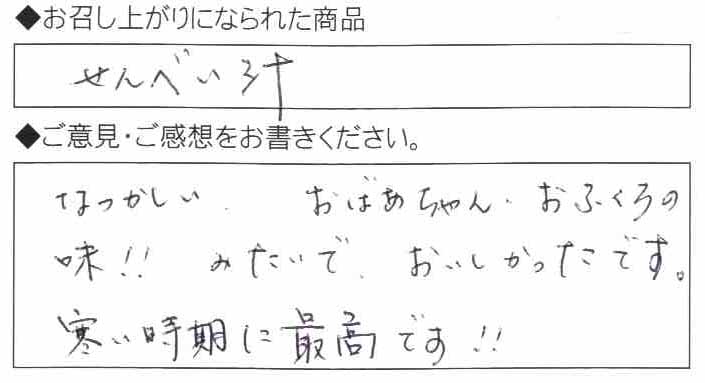 ◆お召し上がりになられた商品
せんべい汁
◆ご意見・ご感想をお書きください。
なつかしい、おばあちゃん・おふくろの
味!! みたいで、おいしかったです。
寒い時期に最高です!!